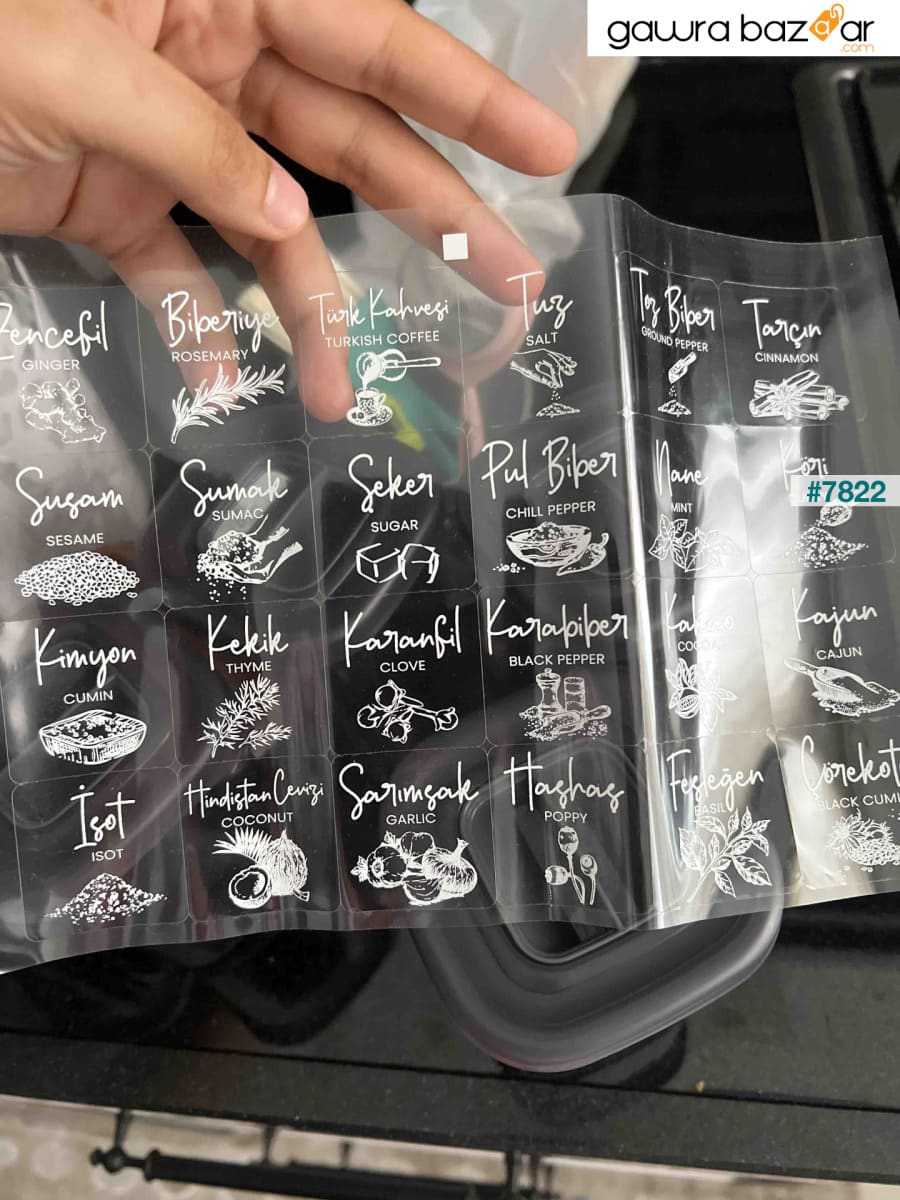 gawra bazaar
.com
Zencefil
GINGER
Biberiye
ROSEMARY
Türk Kahvesi
TURKISH COFFEE
Tuz
SALT
Toz Biber
GROUND PEPPER
Tarçın
CINNAMON
Susam
SESAME
Sumak
SUMAC
Şeker
SUGAR
Pul Biber
CHILL PEPPER
Nane
MINT
Köri
#7822
Kimyon
CUMIN
Kekik
THYME
Karanfil
CLOVE
Karabiber
BLACK PEPPER
Kakao
COCOA
Kajun
CAJUN
İsot
ISOT
Hindistan Cevizi
COCONUT
Sarımsak
GARLIC
Haşhaş
POPPY
Fesleğen
BASIL
Çörekot
BLACK CUMI